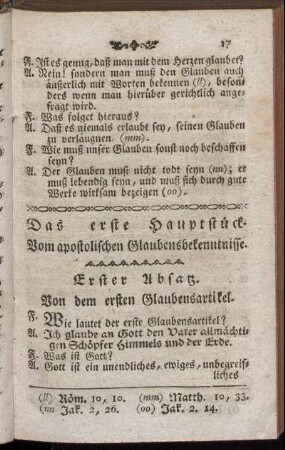 17
F. Ist es genug, daß man mit dem Herzen glaubet?
A. Nein! sondern man muß den Glauben auch
äußerlich mit Worten bekennen (ll), beson-
ders wenn man hierüber gerichtlich ange-
fragt wird.
F. Was folget hieraus?
A. Daß es niemals erlaubt sey, seinen Glauben
zu verlaugnen. (mm)
F. Wie muß unser Glauben sonst noch beschaffen
seyn?
A. Der Glauben muß nicht todt seyn (nn); er
muß lebendig seyn, und muß sich durch gute
Werke wirksam bezeigen (oo).
Das erste Hauptstück.
Vom apostolischen Glaubensbekenntnisse.
Erster Absatz.
Von dem ersten Glaubensartikel.
F. Wie lautet der erste Glaubensartikel?
A. Ich glaube an Gott den Vater allmächti-
gen Schöpfer Himmels und der Erde.
F. Was ist Gott?
A. Gott ist ein unendliches, ewiges, unbegreif-
liches
(ll) Röm. 10, 10. (mm) Matth. 10, 33.
(nn Jak. 2, 26. (oo) Jak. 2. 14.